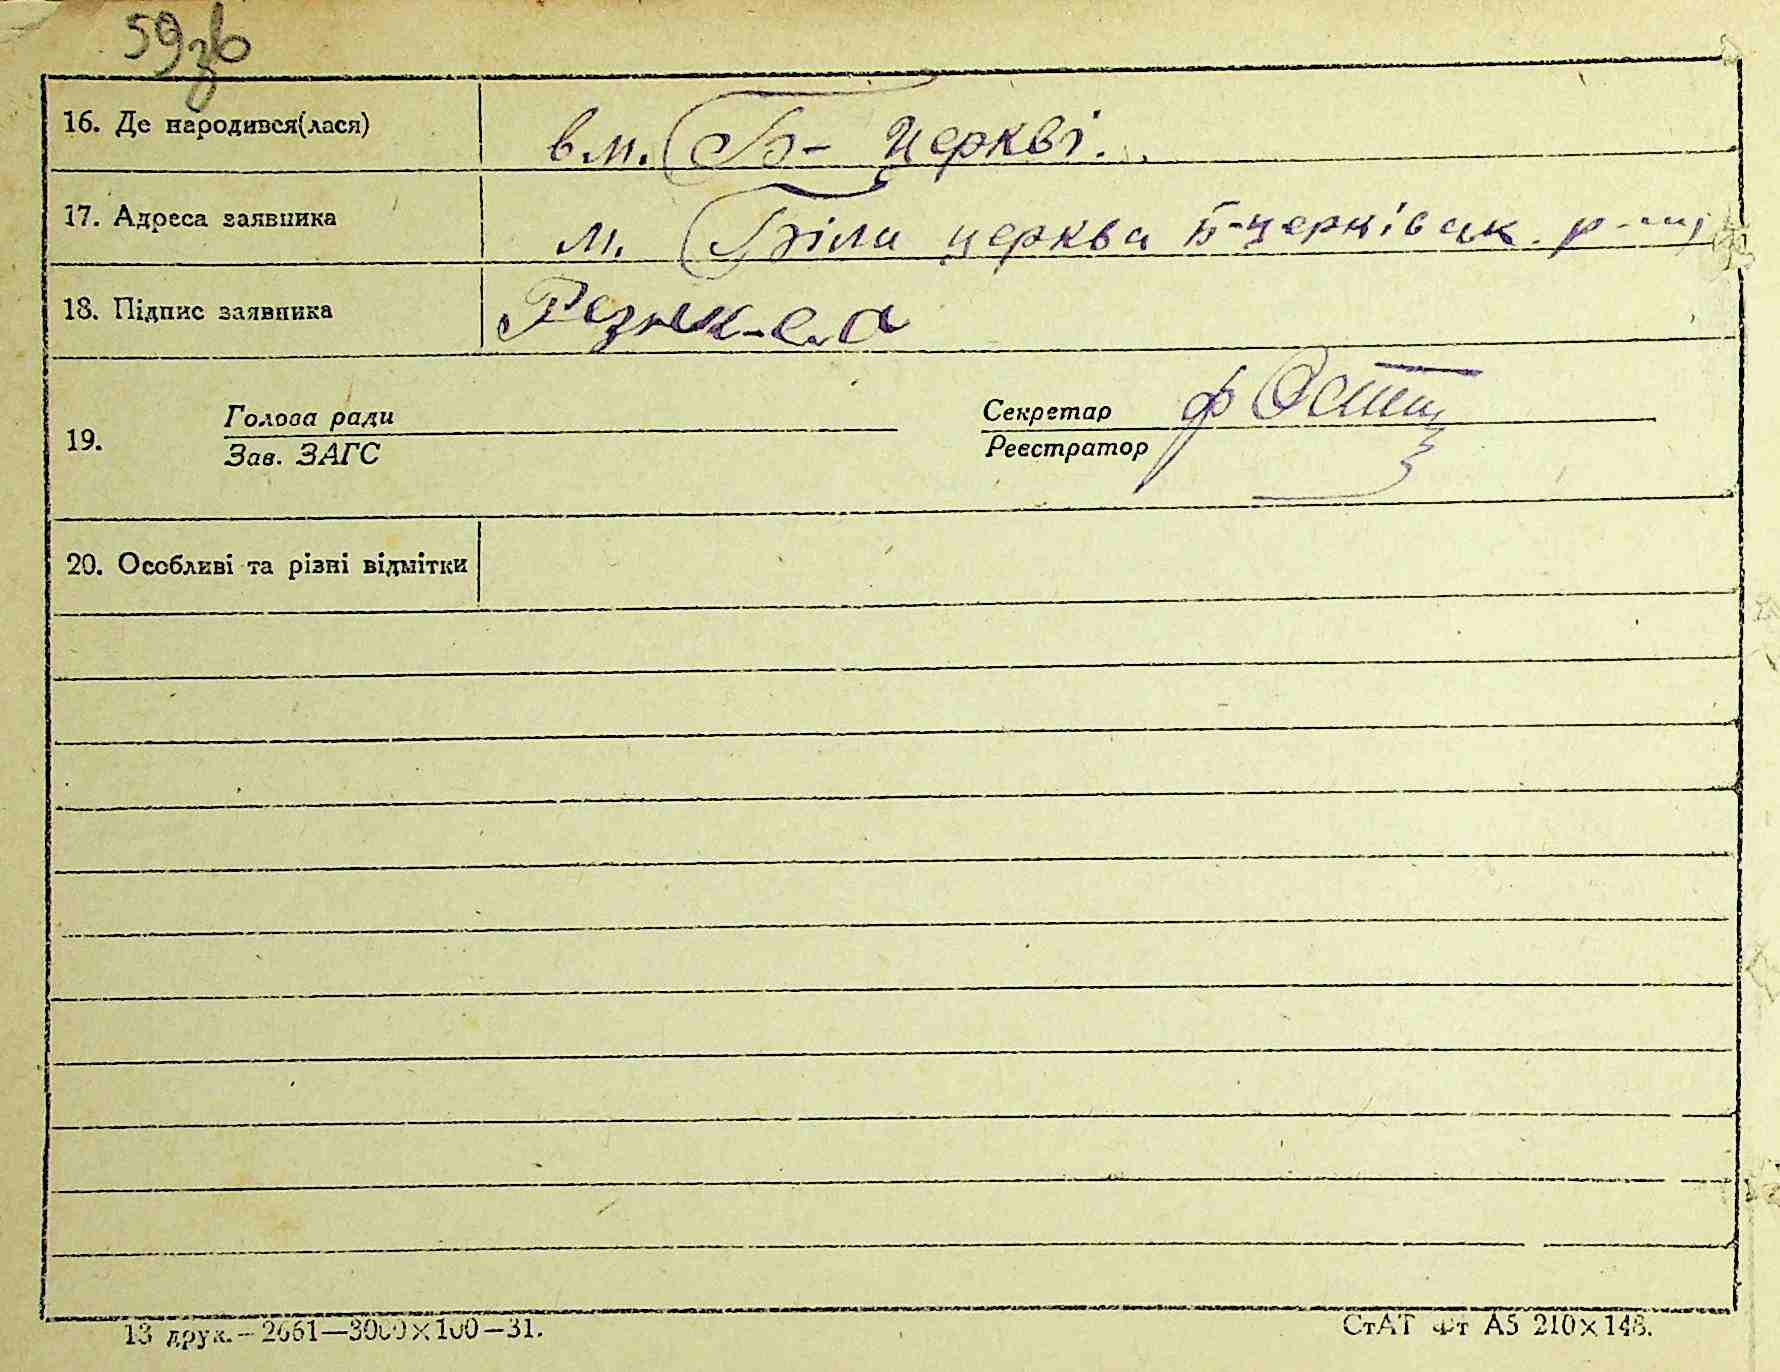 59зв
16. Де народився(лася) в м. Б- Церкві.
17. Адреса заявника м. Біла церква Б-церківськ. р-ну
18. Підпис заявника
19. Голова ради Секретар
Зав. ЗАГС Реєстратор
20. Особливі та різні відмітки
13 друк. – 2661—3000×100–31. СтАТ Фт А5 210×148.